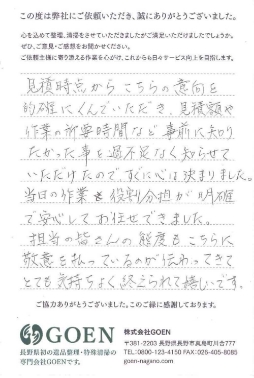 この度は弊社にご依頼いただき、誠にありがとうございました。
心を込めて整理、清掃をさせていただきましたがご満足いただけましたでしょうか。
ぜひ、ご意見・ご感想をお聞かせください。
ご依頼主様に寄り添える作業を心がけ、これからも日々サービス向上を目指します。
見積時点からこちらの意向を
的確にくんでいただき、見積額や
作業の所要時間など事前に知り
たかった事を過不足なく知らせて
いただけたのですぐに心は決まりました。
当日の作業も役割分担が明確
で安心してお任せできました。
担当の皆さんの態度もこちらに
敬意を払っているのが伝わってきて
とても気持ちよく終えられて嬉しいです。
ご協力ありがとうございました。このご縁に感謝しております。
GOEN
長野県初の遺品整理・特殊清掃の
専門会社GOENです。
株式会社GOEN
〒381-2203 長野県長野市真島町川合777
TEL:0800-123-4150 FAX:026-405-8085
goen-nagano.com